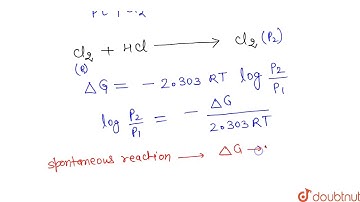 Cl₂ + HCl ⟶ Cl₂ (P₂)
(P₁)
ΔG = − 2.303 RT log P₂/P₁
log P₂/P₁ = − ΔG/2.303 RT
spontaneous reaction ⟶ ΔG ⟶
doubtnut